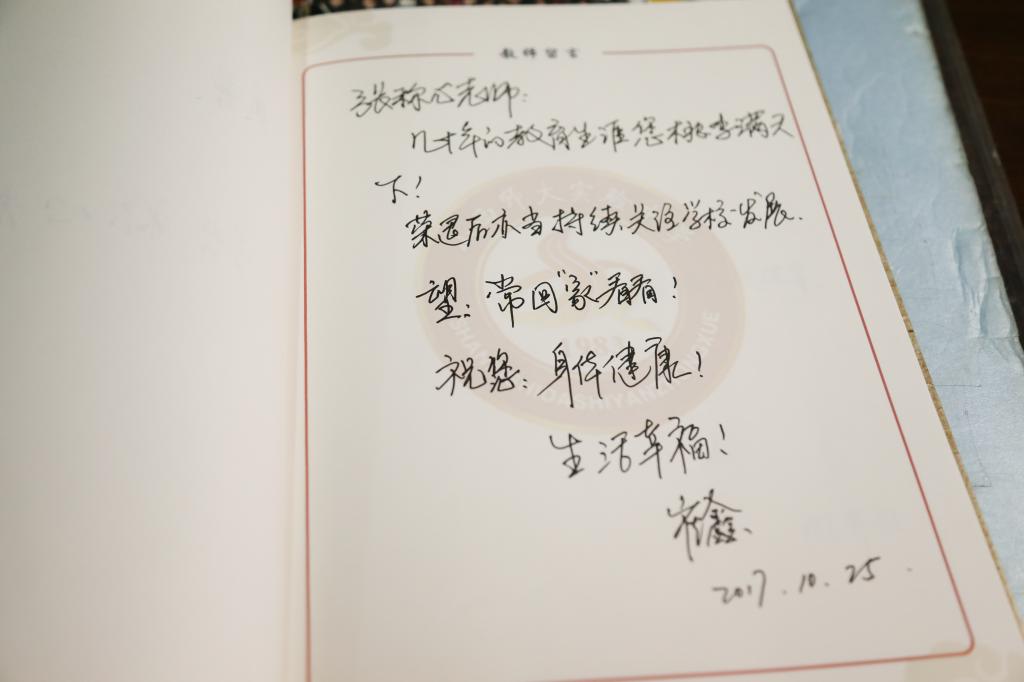 教师留言
张称心老师:
几十年的教育生涯您桃李满天
下!
荣退后亦当持续关注学校发展.
望:常回"家"看看!
祝您:身体健康!
生活幸福!
崔鑫
2017.10.25.
外大实验
1981
DASHIYAN
XUE